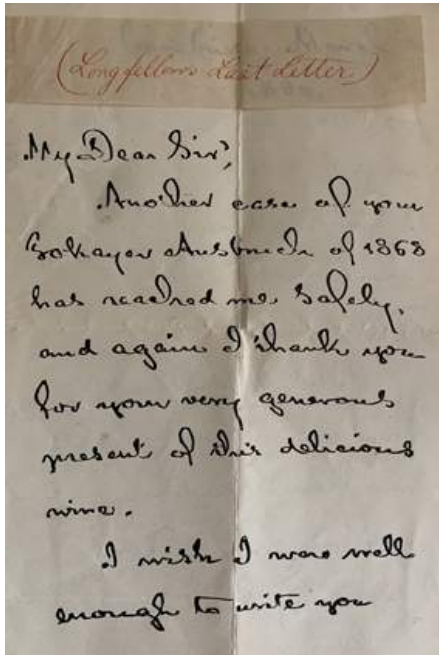 (Longfellows Last Letter.)
My Dear Sir,
Another case of your
Tokayer Ausbruch of 1868
has reached me safely,
and again I thank you
for your very generous
present of this delicious
wine.
I wish I were well
enough to write you